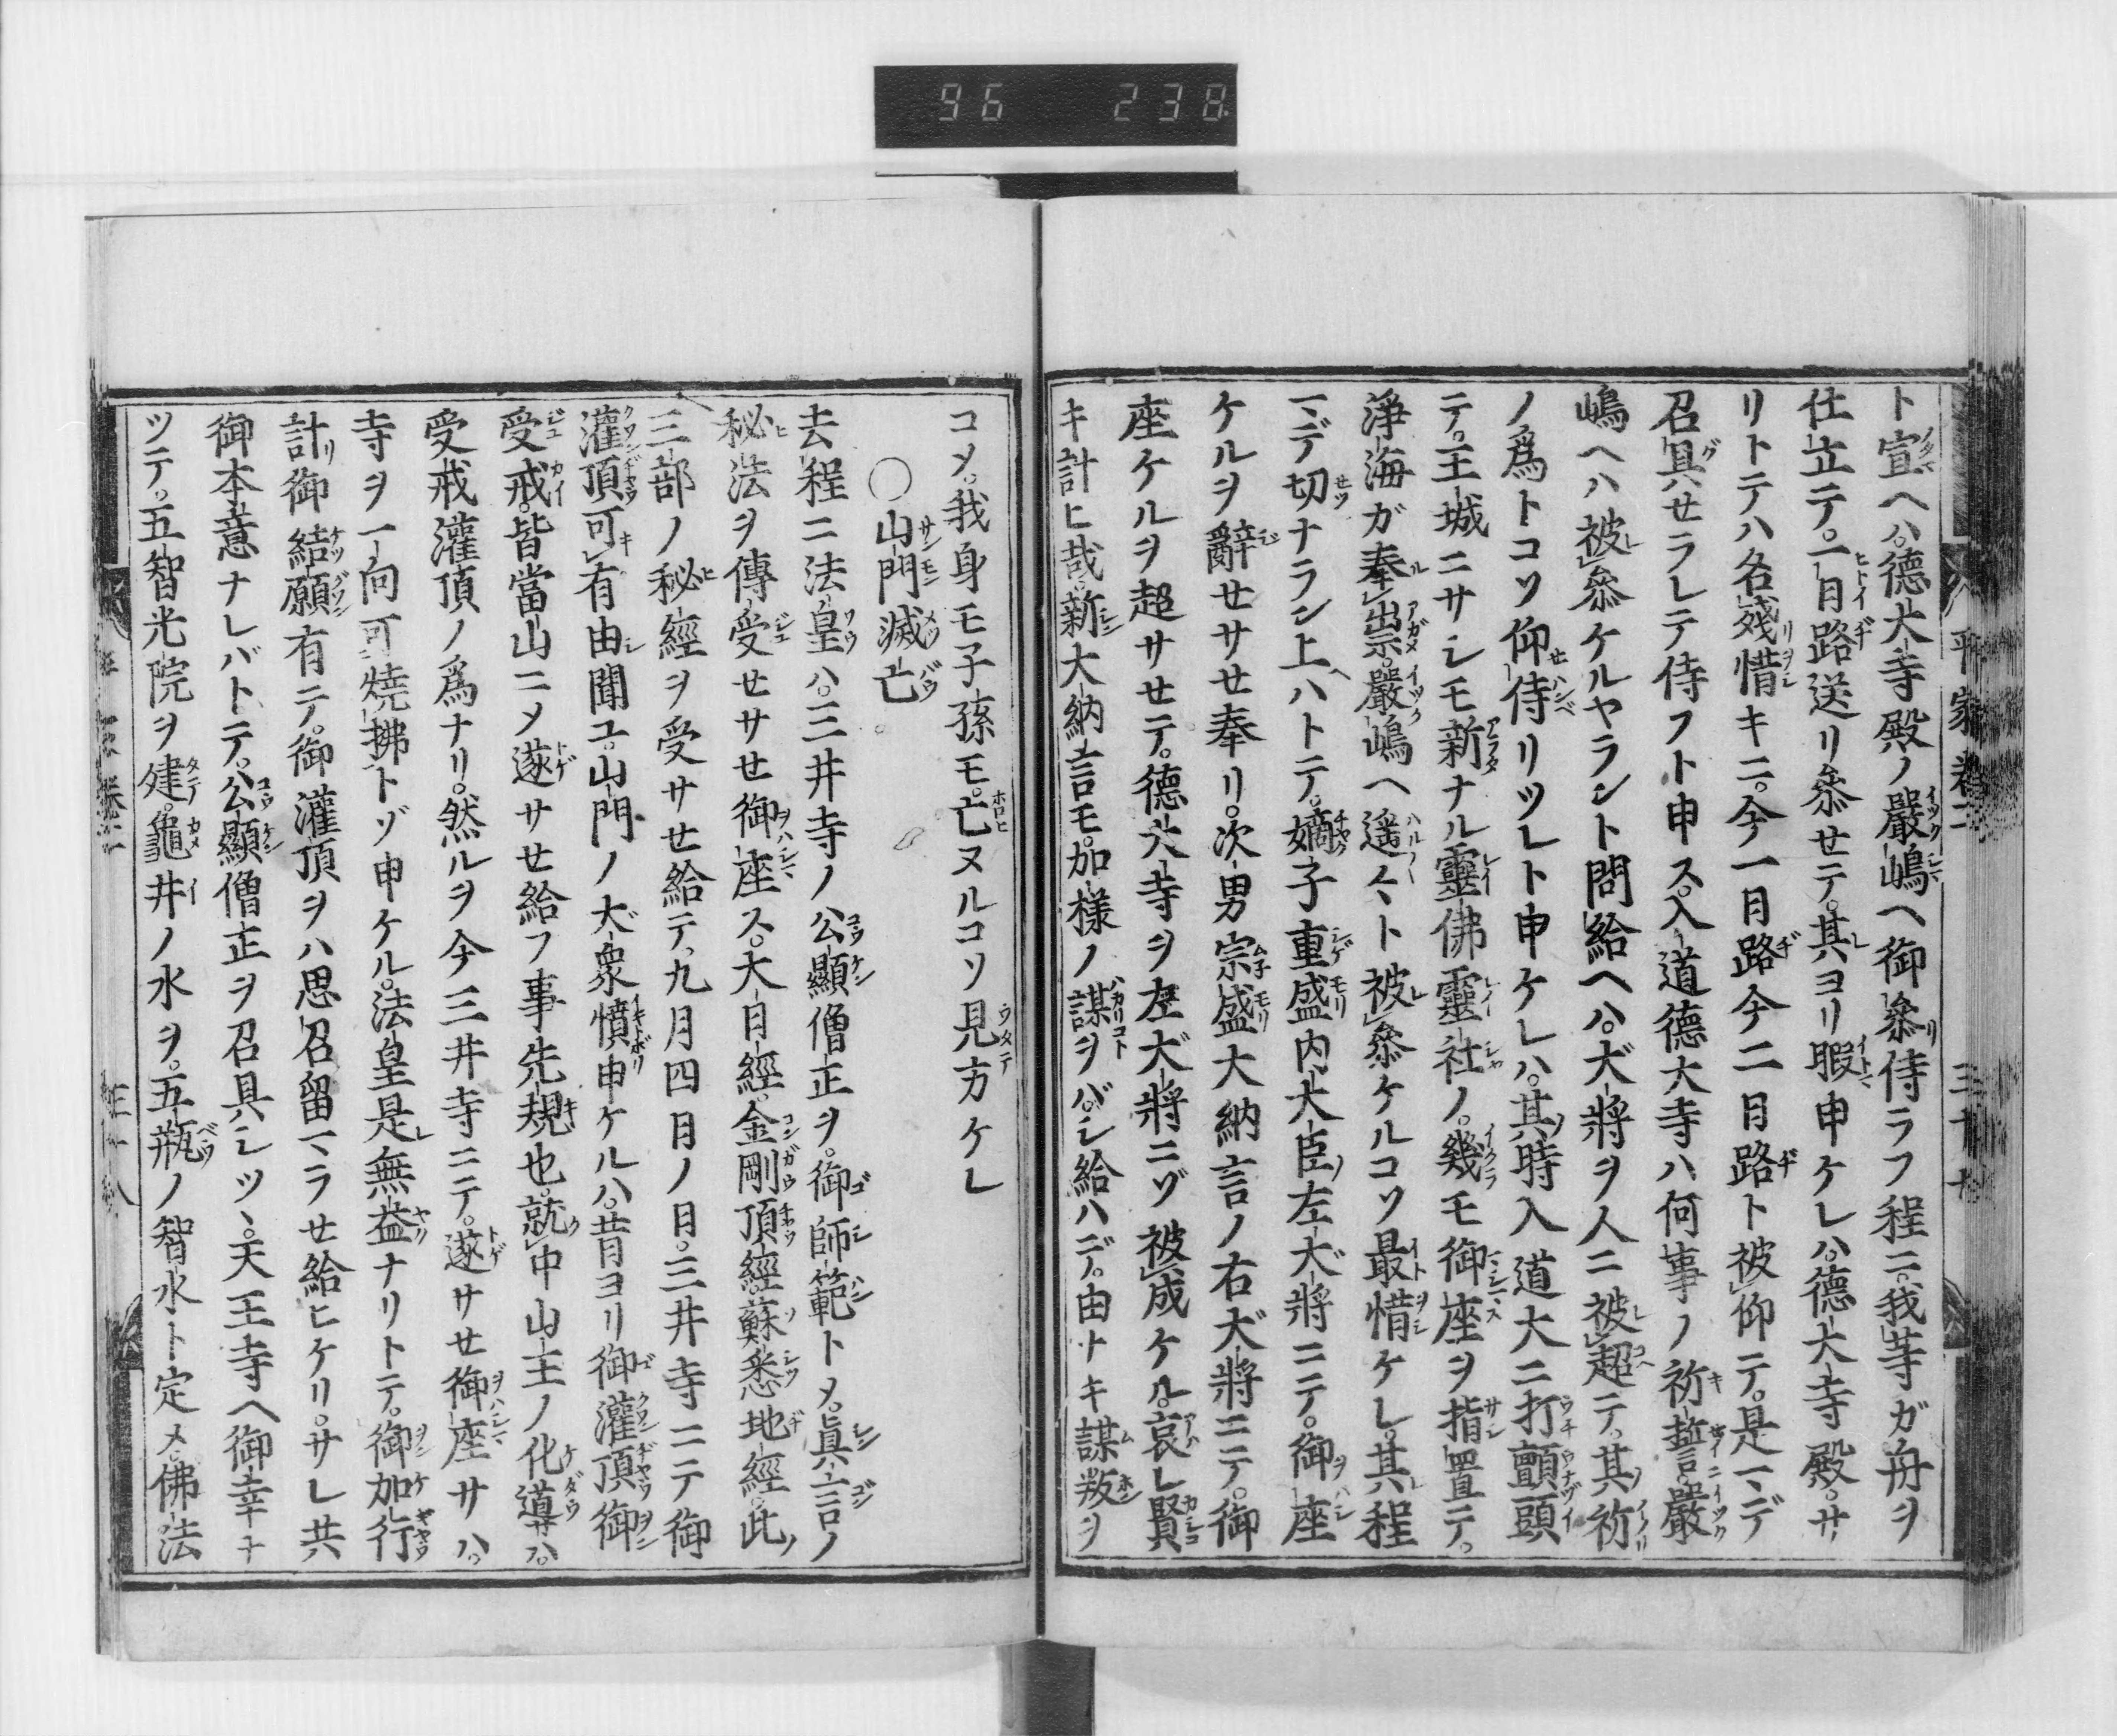 96 238
ト宣ヘハ。德大寺殿ノ嚴嶋ヘ御參リ侍ラフ程ニ。我等ガ舟ヲ
仕立テ。一目路送リ參セテ。其ヨリ暇申ケレハ。德大寺殿。サ
リトテハ名殘惜キニ。今一日路今二日路ト被仰テ。是マデ
召具セラレテ侍フト申ス。入道德大寺ハ何事ノ祈誓ニ嚴
嶋ヘハ被參ケルヤラント問給ヘハ。大將ヲ人ニ被超テ。其祈
ノ爲トコソ仰侍リツレト申ケレハ。其時入道大ニ打顫頭
テ。王城ニサシモ新ナル靈佛靈社ノ。幾モ御座ヲ指置テ。
淨海ガ奉崇。嚴嶋ヘ遙々ト被參ケルコソ最惜ケレ。其程
マデ切ナラン上ハトテ。嫡子重盛内大臣左大將ニテ。御座
ケルヲ辭せサせ奉リ。次男宗盛大納言ノ右大將ニテ。御
座ケルヲ超サせテ。德大寺ヲ左大將ニゾ被成ケル。哀レ賢
キ計ヒ哉。新大納言モ。加樣ノ謀ヲバシ給ハデ。由ナキ謀叛ヲ
平家卷二 三十七
コメ。我身モ子孫モ。亡ヌルコソ見方ケレ
○山門滅亡
去程ニ法皇ハ。三井寺ノ公顯僧正ヲ。御師範トメ。眞言ノ
秘法ヲ傳受せサせ御座ス。大日經。金剛頂經。蘇悉地經。此
三部ノ秘經ヲ受サせ給テ。九月四日ノ日。三井寺ニテ御
灌頂可有由聞ユ。山門ノ大衆憤申ケルハ。昔ヨリ御灌頂御
受戒。皆當山ニメ遂サせ給フ事先規也。就中山王ノ化導ハ。
受戒灌頂ノ爲ナリ。然ルヲ今三井寺ニテ。遂サせ御座サハ。
寺ヲ一向可燒拂トゾ申ケル。法皇是無益ナリトテ。御加行
計リ御結願有テ。御灌頂ヲハ思召留マラせ給ヒケリ。サレ共
御本意ナレバトテ。公顯僧正ヲ召具シツヽ。天王寺ヘ御幸ナ
ツテ。五智光院ヲ建。龜井ノ水ヲ。五瓶ノ智水ト定メ。佛法